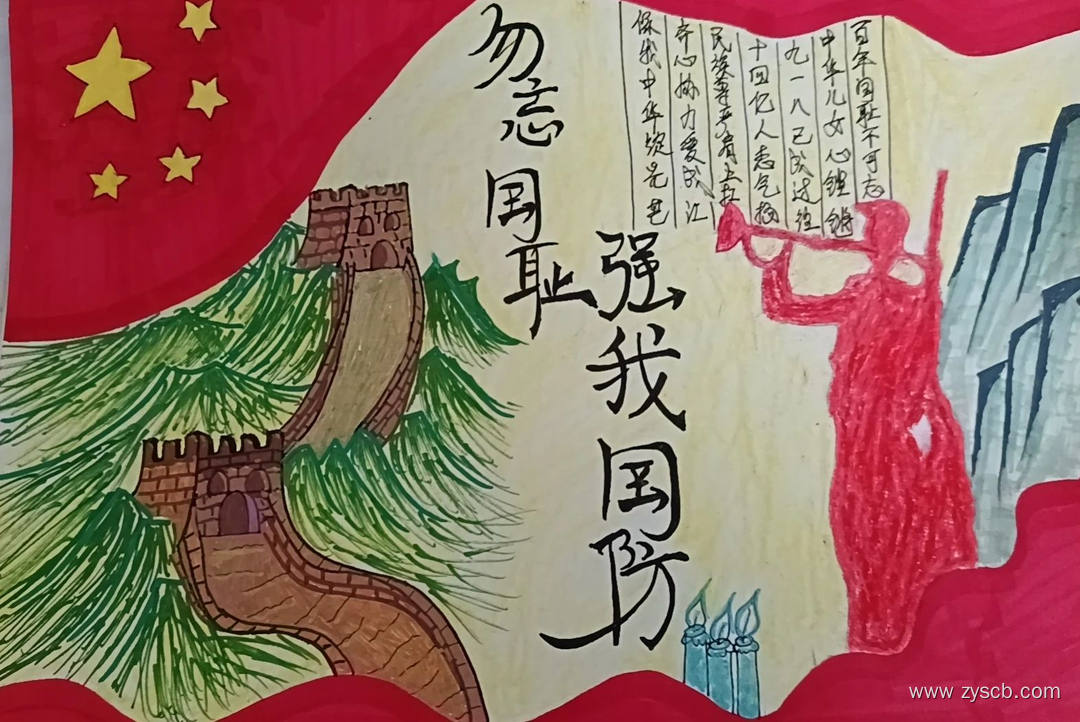 勿忘国耻
强我国防
百年国耻不可忘
中华儿女心铿锵
九一八已成过往
十四亿人志气扬
民族尊严肩上扛
齐心协力爱成江
保我中华绽光芒
www.zyscb.com